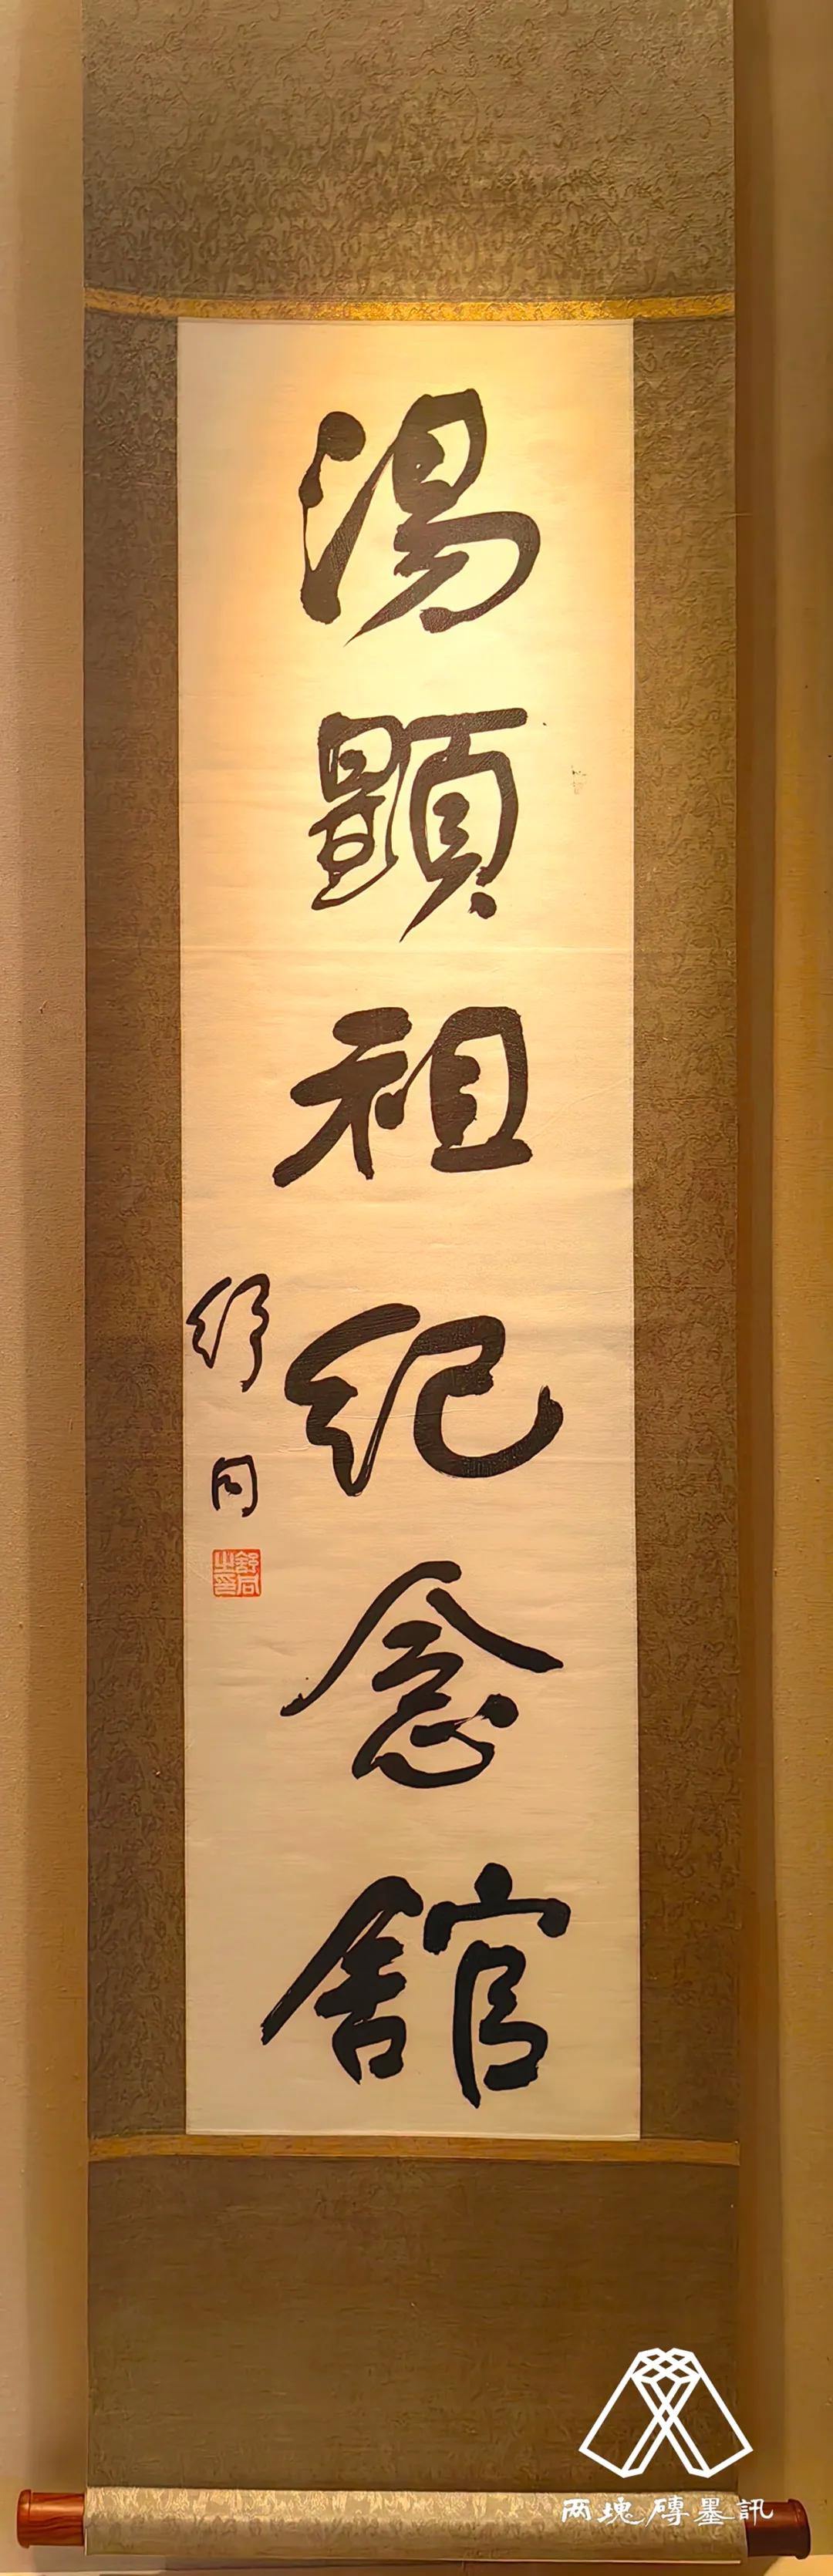 湯顯祖紀念舘
舒同
舒同之印
两塊磚墨訊